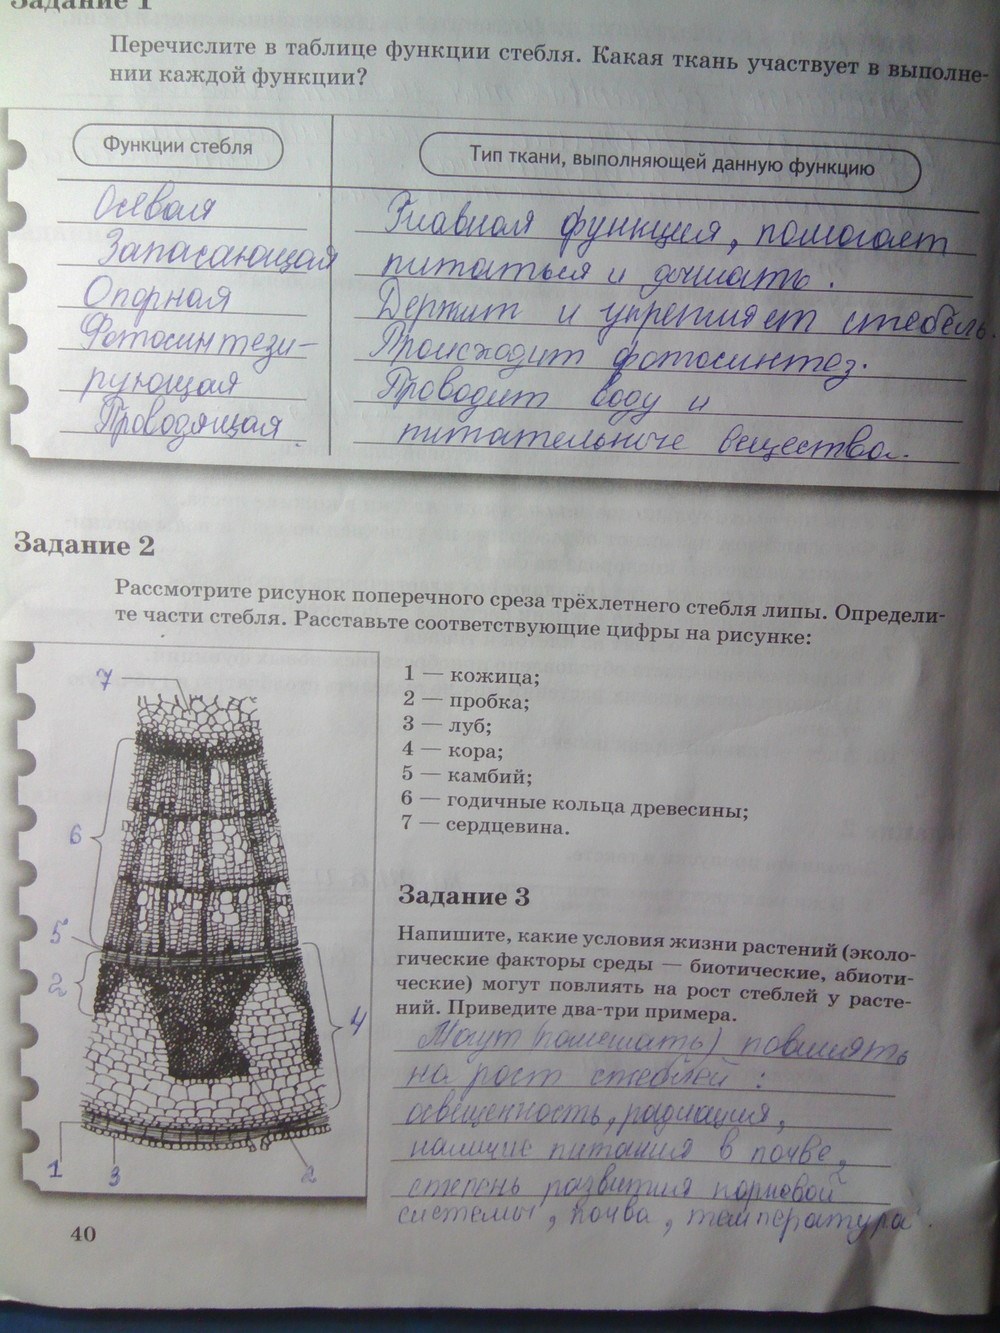 Задание 1
Перечислите в таблице функции стебля. Какая ткань участвует в выполне-
нии каждой функции?
Функции стебля
Тип ткани, выполняющей данную функцию
Осевая
Главная функция, помогает
Запасающая
питаться и дышать.
Опорная
Держит и укрепляет стебель.
Фотосинтези-
Происходит фотосинтез.
рующая
Проводит воду и
Проводящая.
питательные вещества.
Задание 2
Рассмотрите рисунок поперечного среза трёхлетнего стебля липы. Определи-
те части стебля. Расставьте соответствующие цифры на рисунке:
7
6
5
2
4
1
3
2
1 — кожица;
2 — пробка;
3 — луб;
4 — кора;
5 — камбий;
6 — годичные кольца древесины;
7 — сердцевина.
Задание 3
Напишите, какие условия жизни растений (эколо-
гические факторы среды — биотические, абиоти-
ческие) могут повлиять на рост стеблей у расте-
ний. Приведите два-три примера.
Могут (помешать) повлиять
на рост стеблей:
освещенность, радиация,
наличие питания в почве,
степень развития корневой
системы, почва, температура.
40